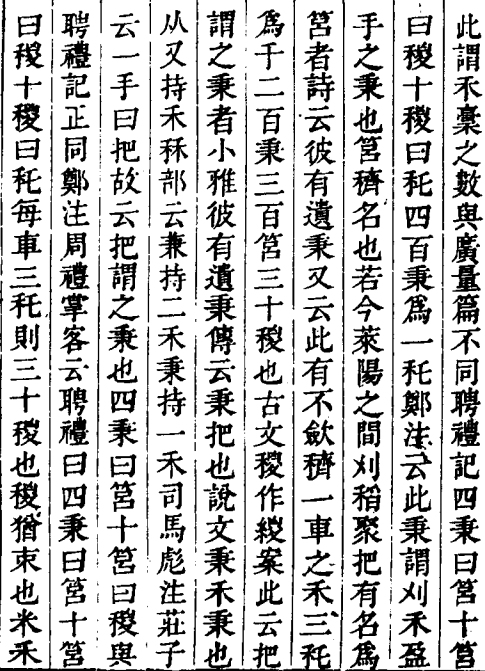 此謂禾稾之數與廣量篇不同聘禮記四秉曰筥十筥
曰稯十稯曰秅四百秉爲一秅鄭注云此秉謂刈禾盈
手之秉也筥穧名也若今萊陽之間刈稻聚把有名爲
筥者詩云彼有遺秉又云此有不斂穧一車之禾三秅
爲千二百秉三百筥三十稯也古文稯作緵案此云把
謂之秉者小雅彼有遺秉傳云秉把也說文秉禾秉也
从又持禾秝部云兼持二禾秉持一禾司馬彪注莊子
云一手曰把故云把謂之秉也四秉曰筥十筥曰稯與
聘禮記正同鄭注周禮掌客云聘禮曰四秉曰筥十筥
曰稯十稯曰秅每車三秅則三十稯也稯猶束也米禾